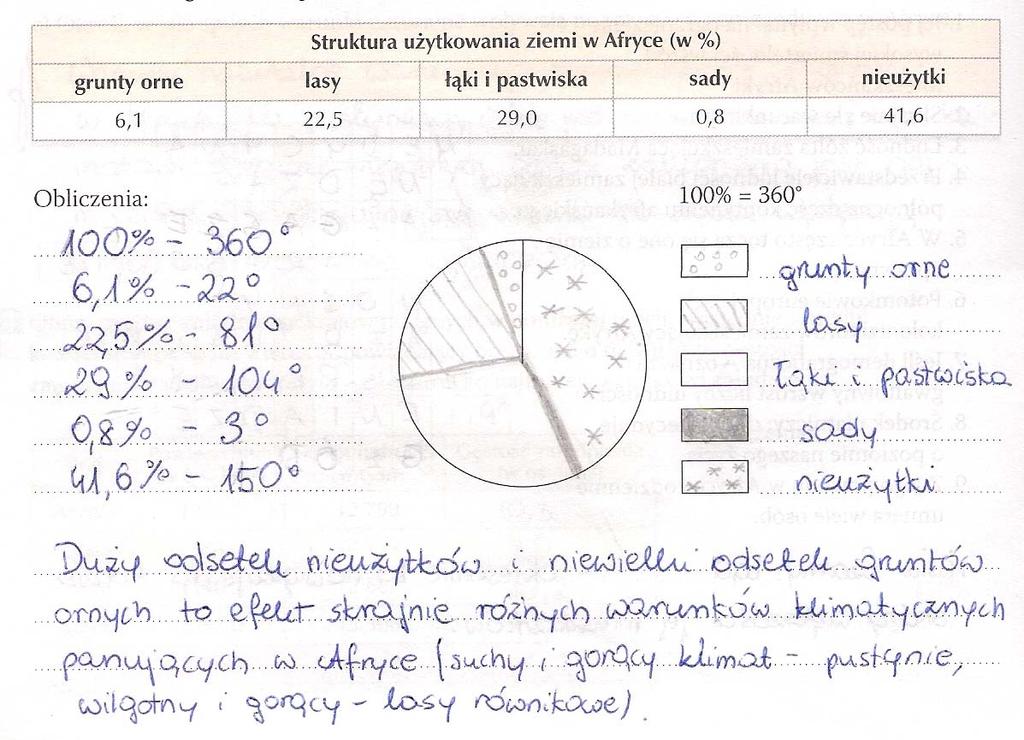 Struktura użytkowania ziemi w Afryce (w %)
grunty orne lasy łąki i pastwiska sady nieużytki
6,1 22,5 29,0 0,8 41,6
Obliczenia:
100% = 360°
100% - 360°
6,1% - 22°
22,5% - 81°
29% - 104°
0,8% - 3°
41,6% - 150°
grunty orne
lasy
łąki i pastwiska
sady
nieużytki
Duży odsetek nieużytków i niewielki odsetek gruntów
ornych to efekt skrajnie różnych warunków klimatycznych
panujących w Afryce (suchy i gorący klimat - pustynie,
wilgotny i gorący - lasy równikowe).